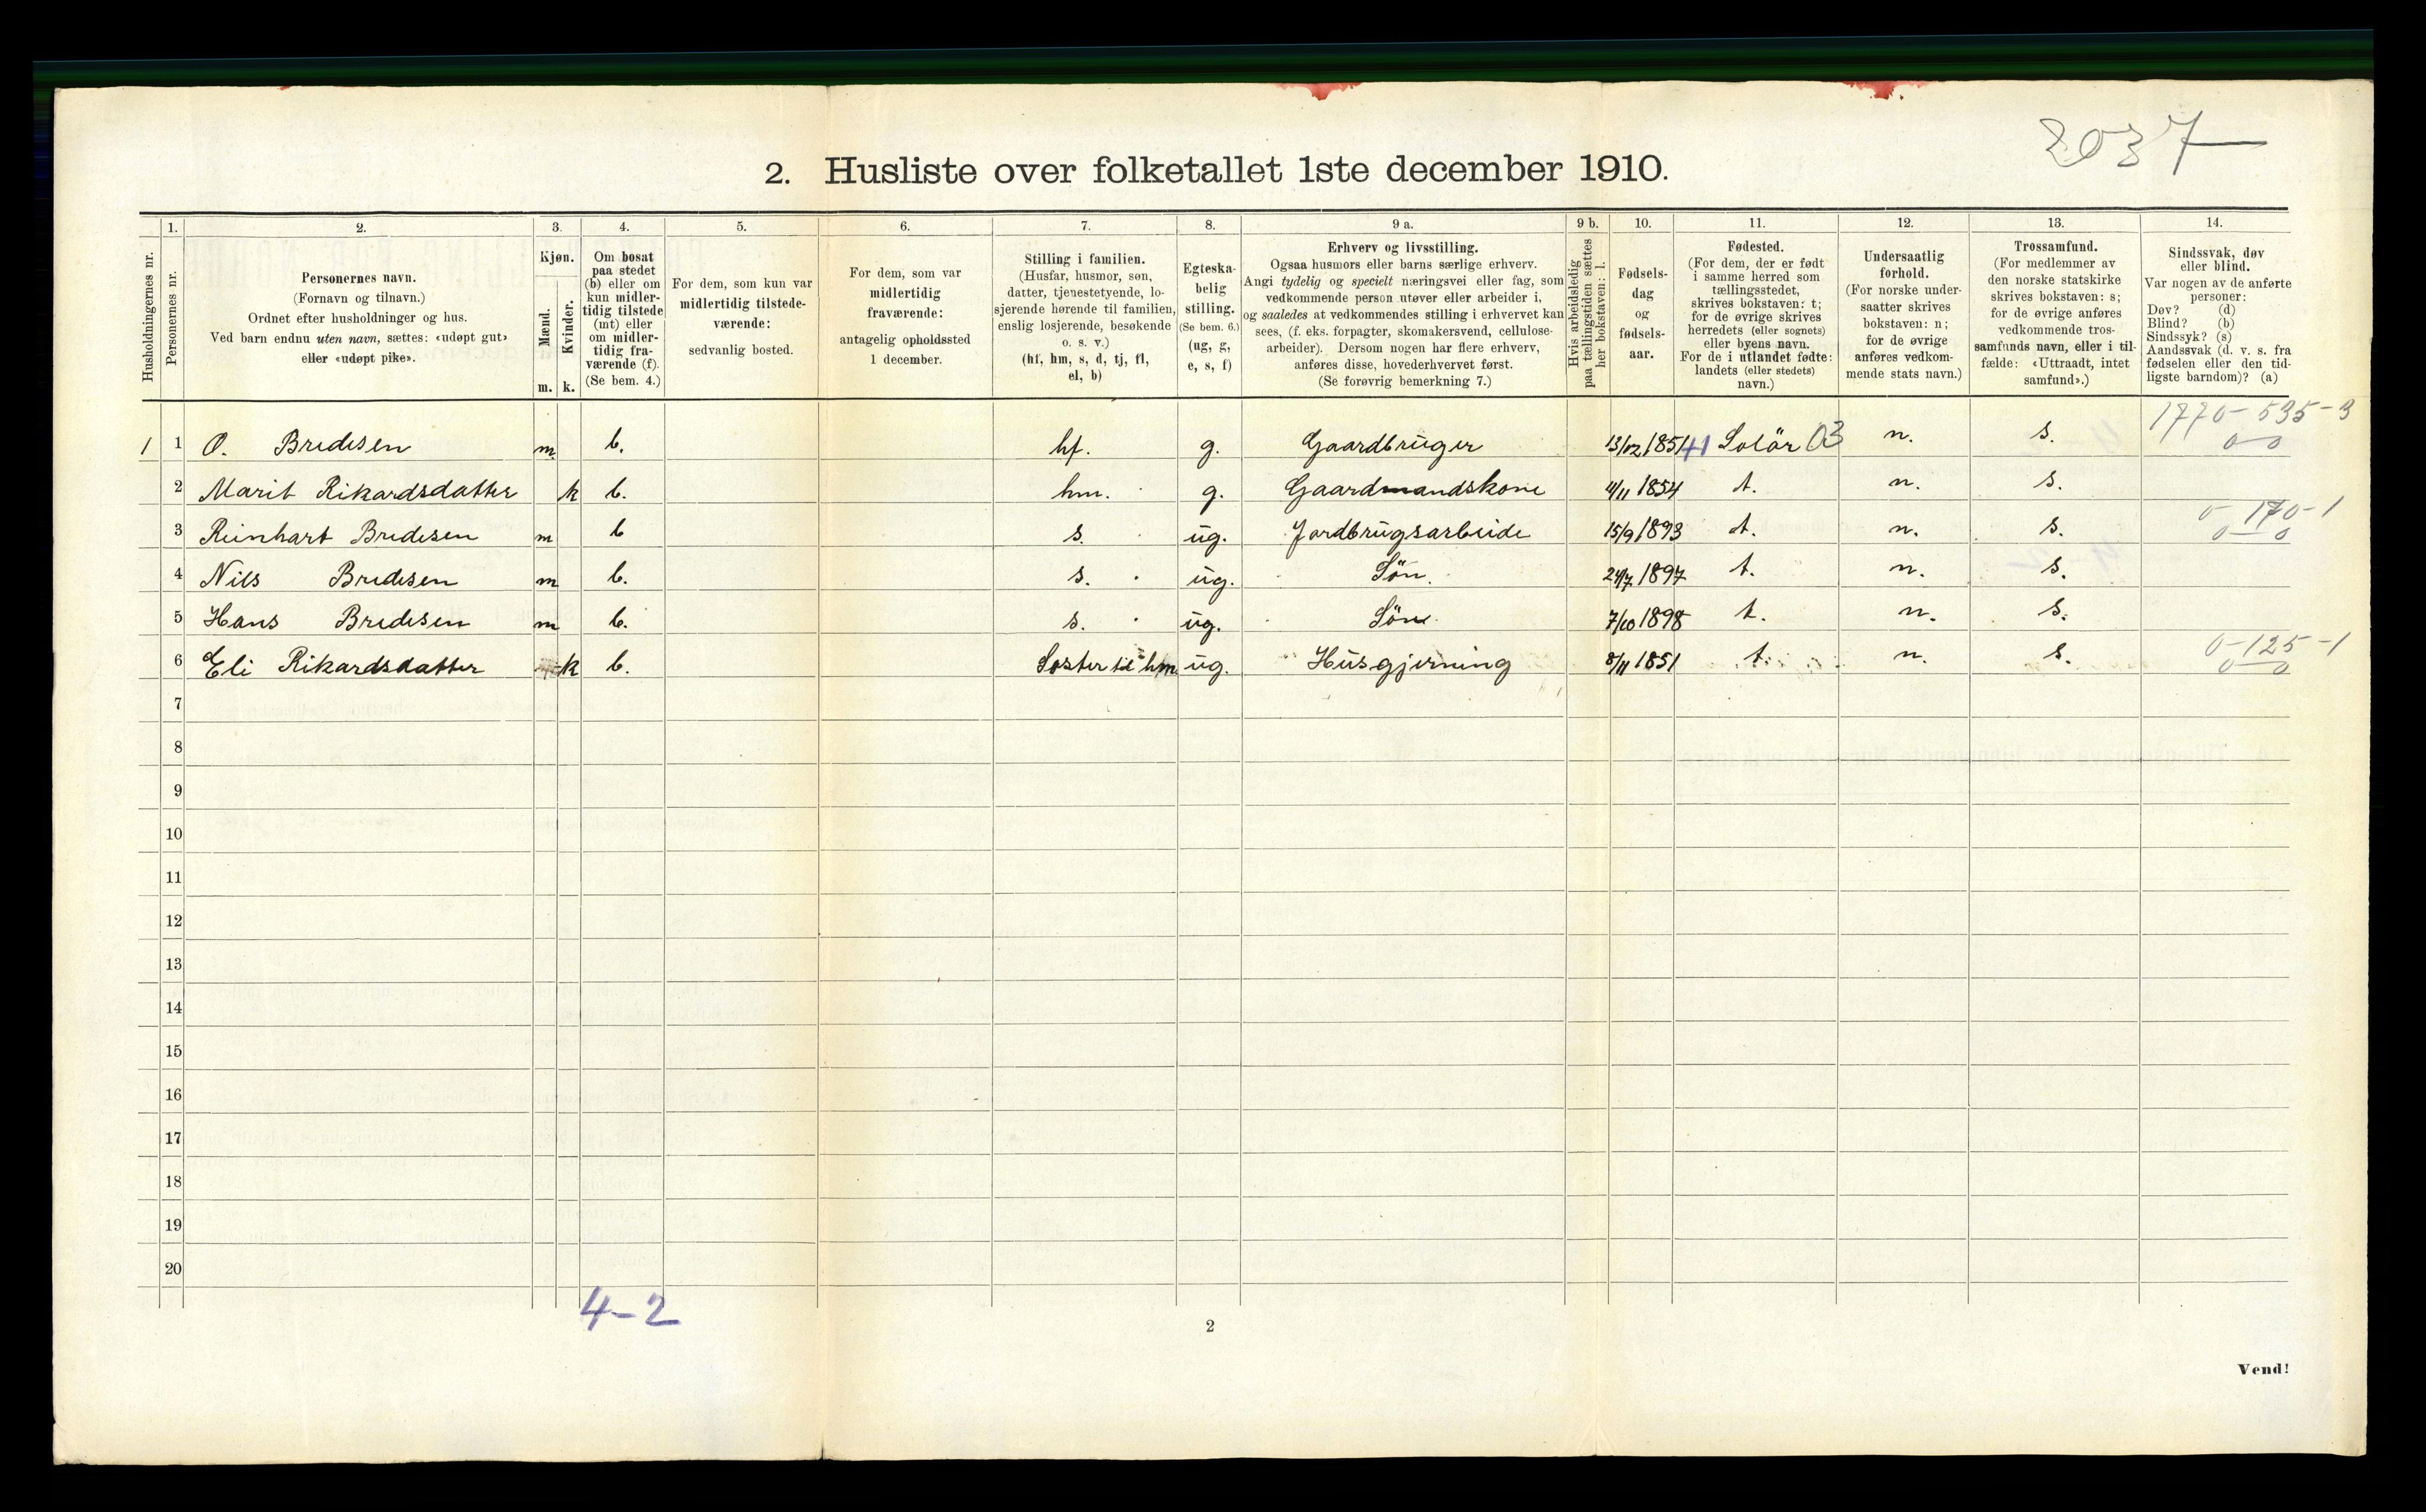 2037
2. Husliste over folketallet 1ste december 1910.
1. 2. 3. 4. 5. 6. 7. 8. 9 a. 9 b. 10. 11. 12. 13. 14.
Husholdningernes nr.
Personernes nr.
Personernes navn.
(Fornavn og tilnavn.)
Ordnet efter husholdninger og hus.
Ved barn endnu uten navn, sættes: «udøpt gut»
eller «udøpt pike».
Kjøn.
Mænd.
Kvinder.
m. k.
Om bosat
paa stedet
(b) eller om
kun midler-
tidig tilstede
(mt) eller
om midler-
tidig fra-
værende (f).
(Se bem. 4.)
For dem, som kun var
midlertidig tilstede-
værende:
sedvanlig bosted.
For dem, som var
midlertidig
fraværende:
antagelig opholdssted
1 december.
Stilling i familien.
(Husfar, husmor, søn,
datter, tjenestetyende, lo-
sjerende hørende til familien,
enslig losjerende, besøkende
o. s. v.)
(hf, hm, s, d, tj, fl,
el, b)
Egteska-
belig
stilling.
(Se bem. 6.)
(ug, g,
e, s, f)
Erhverv og livsstilling.
Ogsaa husmors eller barns særlige erhverv.
Angi tydelig og specielt næringsvei eller fag, som
vedkommende person utøver eller arbeider i,
og saaledes at vedkommendes stilling i erhvervet kan
sees, (f. eks. forpagter, skomakersvend, cellulose-
arbeider). Dersom nogen har flere erhverv,
anføres disse, hovederhvervet først.
(Se forøvrig bemerkning 7.)
Hvis arbeidsledig
paa tællingstiden sættes
her bokstaven: l.
Fødsels-
dag
og
fødsels-
aar.
Fødested.
(For dem, der er født
i samme herred som
tællingsstedet,
skrives bokstaven: t;
for de øvrige skrives
herredets (eller sognets)
eller byens navn.
For de i utlandet fødte:
landets (eller stedets)
navn.)
Undersaatlig
forhold.
(For norske under-
saatter skrives
bokstaven: n;
for de øvrige
anføres vedkom-
mende stats navn.)
Trossamfund.
(For medlemmer av
den norske statskirke
skrives bokstaven: s;
for de øvrige anføres
vedkommende tros-
samfunds navn, eller i til-
fælde: «Uttraadt, intet
samfund».)
Sindssvak, døv
eller blind.
Var nogen av de anførte
personer:
Døv? (d)
Blind? (b)
Sindssyk? (s)
Aandssvak (d. v. s. fra
fødselen eller den tid-
ligste barndom)? (a)
1 1 O. Bredesen m. b. hf. g. Gaardbruger 13/12 1851 41 Solör 03 n. s. 1770-535-3
0-0
2 Marit Rikardsdatter k b. hm. g. Gaardmandskone 4/11 1854 t. n. s.
3 Reinhart Bredesen m b s. ug. Jordbrugsarbeide 15/9 1893 t. n. s. 0-170-1
0-0
4 Nils Bredesen m b. s. ug. Sön. 24/7 1897 t. n. s.
5 Hans Bredesen m b. s. ug. Sön 7/10 1898 t. n. s.
6 Eli Rikardsdatter k b. Søster til hm. ug. Husgjerning 8/11 1851 t. n. s. 0-125-1
0-0
7
8
9
10
11
12
13
14
15
16
17
18
19
20
4-2
2
Vend!